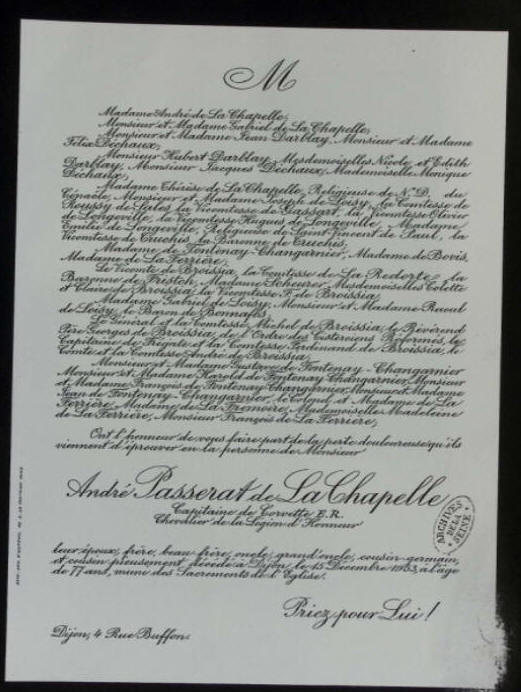 M
Madame André de La Chapelle,
Monsieur et Madame Gabriel de La Chapelle,
Monsieur et Madame Jean Darblay, Monsieur et Madame
Félix Déchaux,
Monsieur Hubert Darblay, Mesdemoiselles Nicole et Edith
Darblay, Monsieur Jacques Déchaux, Mademoiselle Monique
Déchaux,
Madame Thérèse de La Chapelle, Religieuse de N.D. du
Cénacle, Monsieur et Madame Joseph de Loisy, la Comtesse de
Roussy de Sales, la Vicomtesse de Gassart, la Vicomtesse Olivier
de Longeville, la Vicomtesse Hugues de Longeville, Madame
Emilie de Longeville, Religieuse de Saint Vincent de Paul, la
Vicomtesse de Truchis, la Baronne de Truchis,
Madame de Fontenay-Changarnier, Madame de Bovis,
Madame de La Ferrière,
Le Vicomte de Broissia, la Comtesse de La Redorte, la
Baronne de Fristch, Madame Scheurer, Mesdemoiselles Colette
et Claire de Broissia, la Vicomtesse F. de Broissia,
Madame Gabriel de Loisy, Monsieur et Madame Raoul
de Loisy, le Baron de Bonnafos
Le Général et la Comtesse Michel de Broissia, le Révérend
Père Georges de Broissia, de l'Ordre des Cisterciens Réformés, le
Capitaine de Frégate et la Comtesse Ferdinand de Broissia, le
Comte et la Comtesse André de Broissia,
Monsieur et Madame Gustave de Fontenay-Changarnier
Monsieur et Madame Harold de Fontenay Changarnier, Monsieur
et Madame François de Fontenay-Changarnier, Monsieur et Madame
Jean de Fontenay-Changarnier, le Colonel et Madame de La
Ferrière, Madame de La Fremoire, Mademoiselle Madeleine
de La Ferrière, Monsieur François de La Ferrière,
Ont l'honneur de vous faire part de la perte douloureuse qu'ils
viennent d'éprouver en la personne de Monsieur
André Passerat de La Chapelle
Capitaine de Corvette E.R.
Chevalier de la Légion d'Honneur
ARCHIVES
DE LA
SEINE
leur époux, frère, beau-frère, oncle, grand'oncle, cousin-germain,
et cousin pieusement décédé à Dijon, le 15 Décembre 1953, à l'âge
de 77 ans, muni des Sacrements de l'Eglise.
Priez pour Lui!
Dijon, 4 Rue Buffon.